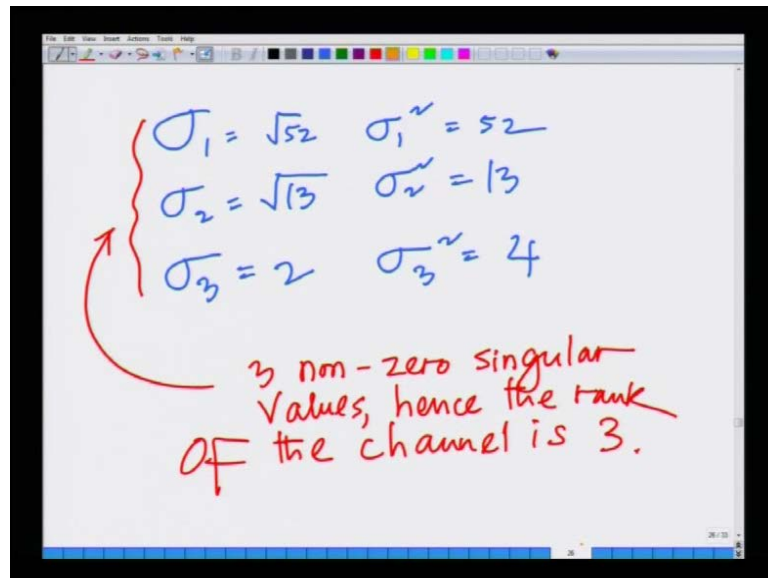 File Edit View Insert Actions Tools Help
σ₁ = √52 σ₁² = 52
σ₂ = √13 σ₂² = 13
σ₃ = 2 σ₃² = 4
3 non-zero singular
values, hence the rank
OF the channel is 3.
28 / 33
28